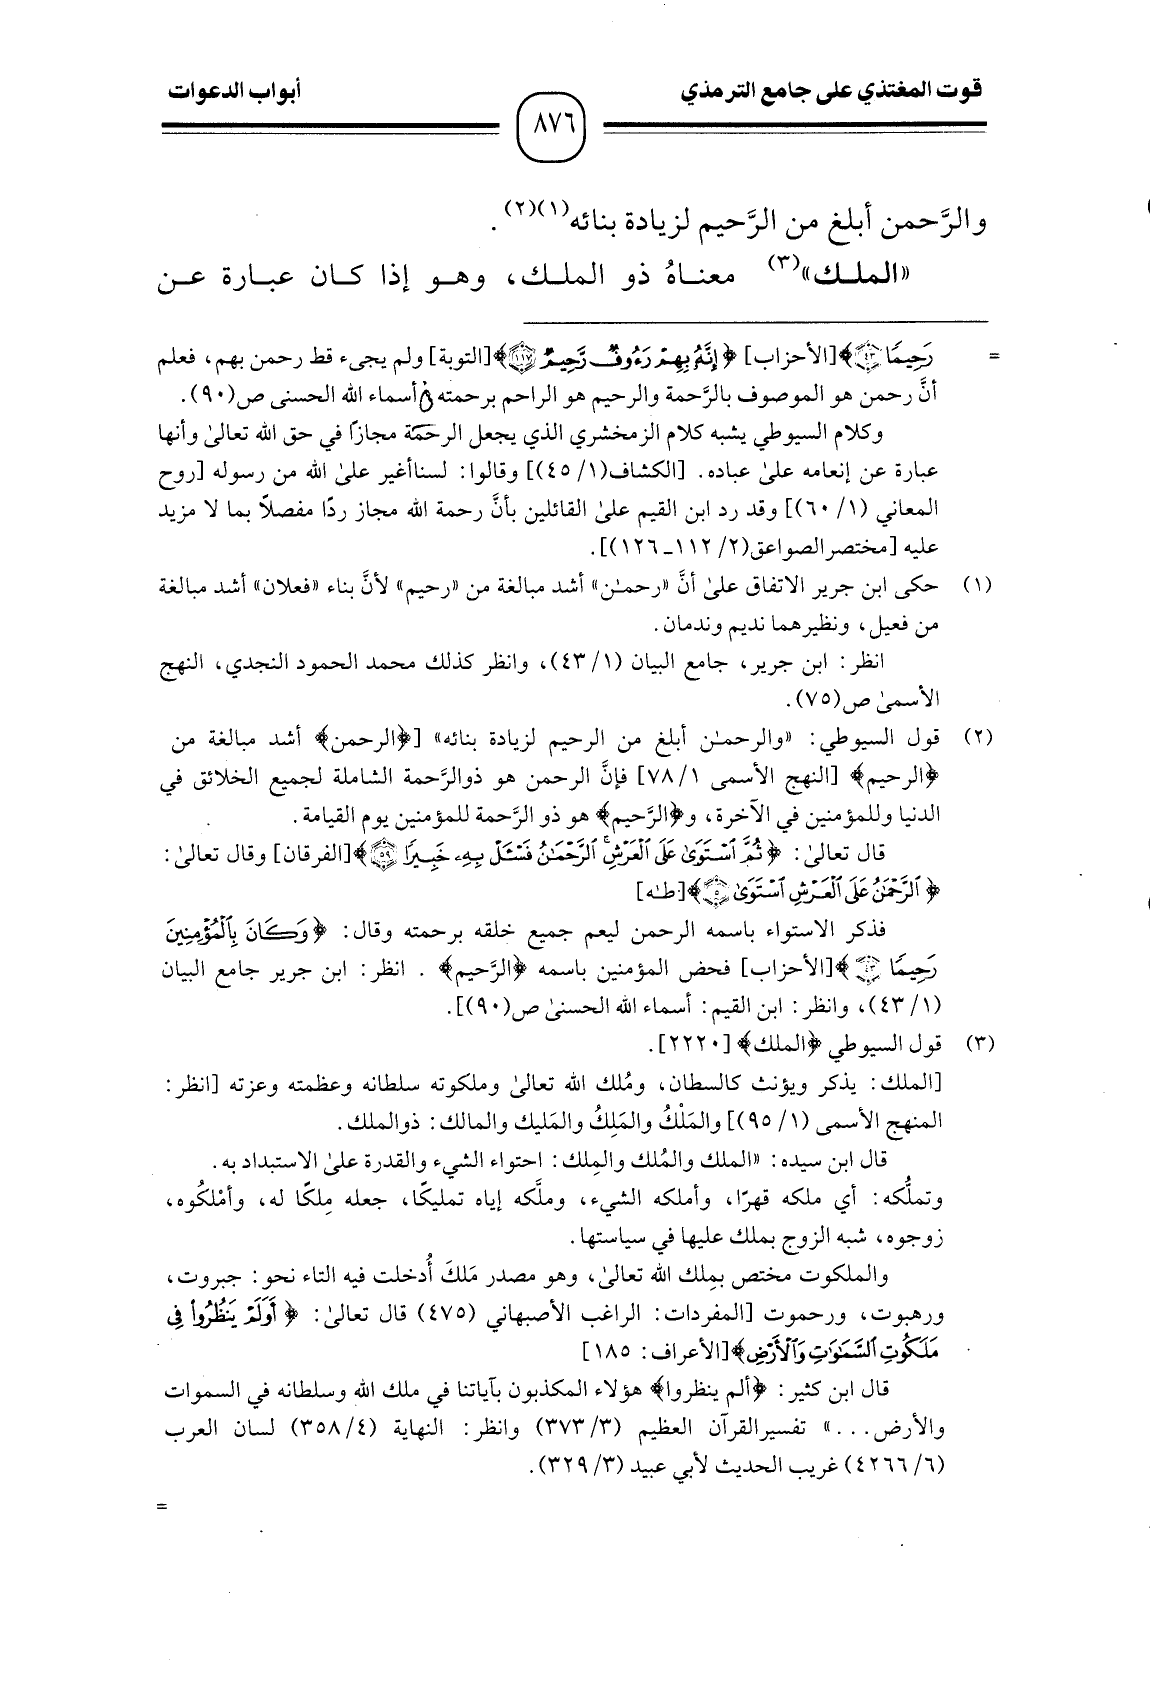 قوت المغتذي على جامع الترمذي
أبواب الدعوات
٨٧٦
والرَّحمن أبلغ من الرَّحيم لزيادة بنائه(١)(٢).
«الملك»(٣) معناهُ ذو الملك، وهو إذا كان عبارة عن
= رَحِيمًا ٤٣﴾[الأحزاب] ﴿إِنَّهُ بِهِمْ رَءُوفٌ رَّحِيمٌ ١١٧﴾[التوبة] ولم يجيء قط رحمن بهم، فعلم
أنَّ رحمن هو الموصوف بالرَّحمة والرحيم هو الراحم برحمته أسماء الله الحسنى ص(٩٠).
وكلام السيوطي يشبه كلام الزمخشري الذي يجعل الرحمة مجازًا في حق الله تعالىٰ وأنها
عبارة عن إنعامه علىٰ عباده. [الكشاف(١/ ٤٥)] وقالوا: لسناأغير علىٰ الله من رسوله [روح
المعاني (١/ ٦٠)] وقد رد ابن القيم علىٰ القائلين بأنَّ رحمة الله مجاز ردًا مفصلاً بما لا مزيد
عليه [مختصرالصواعق(٢/ ١١٢ـ ١٢٦)].
(١) حكى ابن جرير الاتفاق علىٰ أنَّ «رحمـٰن» أشد مبالغة من «رحيم» لأنَّ بناء «فعلان» أشد مبالغة
من فعيل، ونظيرهما نديم وندمان.
انظر: ابن جرير، جامع البيان (١/ ٤٣)، وانظر كذلك محمد الحمود النجدي، النهج
الأسمىٰ ص(٧٥).
(٢) قول السيوطي: «والرحمـٰن أبلغ من الرحيم لزيادة بنائه» [﴿الرحمن﴾ أشد مبالغة من
﴿الرحيم﴾ [النهج الأسمى ١/ ٧٨] فإنَّ الرحمن هو ذوالرَّحمة الشاملة لجميع الخلائق في
الدنيا وللمؤمنين في الآخرة، و﴿الرَّحيم﴾ هو ذو الرَّحمة للمؤمنين يوم القيامة.
قال تعالىٰ: ﴿ثُمَّ ٱسْتَوَىٰ عَلَى ٱلْعَرْشِۚ ٱلرَّحْمَٰنُ فَسْـَٔلْ بِهِۦ خَبِيرًا ٥٩﴾[الفرقان] وقال تعالىٰ:
﴿ٱلرَّحْمَٰنُ عَلَى ٱلْعَرْشِ ٱسْتَوَىٰ ٥﴾[طـٰه]
فذكر الاستواء باسمه الرحمن ليعم جميع خلقه برحمته وقال: ﴿وَكَانَ بِٱلْمُؤْمِنِينَ
رَحِيمًا ٤٣﴾[الأحزاب] فحض المؤمنين باسمه ﴿الرَّحيم﴾ . انظر: ابن جرير جامع البيان
(١/ ٤٣)، وانظر: ابن القيم: أسماء الله الحسنىٰ ص(٩٠)].
(٣) قول السيوطي ﴿الملك﴾ [٢٢٢٠].
[الملك: يذكر ويؤنث كالسطان، ومُلك الله تعالىٰ وملكوته سلطانه وعظمته وعزته [انظر:
المنهج الأسمى (١/ ٩٥)] والمَلْكُ والمَلِكُ والمَليك والمالك: ذوالملك.
قال ابن سيده: «الملك والمُلك والمِلك: احتواء الشيء والقدرة علىٰ الاستبداد به.
وتملُّكه: أي ملكه قهرًا، وأملكه الشيء، وملَّكه إياه تمليكًا، جعله مِلكًا له، وأمْلكُوه،
زوجوه، شبه الزوج بملك عليها في سياستها.
والملكوت مختص بمِلك الله تعالىٰ، وهو مصدر مَلكَ أُدخلت فيه التاء نحو: جبروت،
ورهبوت، ورحموت [المفردات: الراغب الأصبهاني (٤٧٥) قال تعالىٰ: ﴿أَوَلَمْ يَنظُرُوا۟ فِى
مَلَكُوتِ ٱلسَّمَٰوَٰتِ وَٱلْأَرْضِ﴾[الأعراف: ١٨٥]
قال ابن كثير: ﴿ألم ينظروا﴾ هؤلاء المكذبون بآياتنا في ملك الله وسلطانه في السموات
والأرض...» تفسيرالقرآن العظيم (٣/ ٣٧٣) وانظر: النهاية (٤/ ٣٥٨) لسان العرب
(٦/ ٤٢٦٦) غريب الحديث لأبي عبيد (٣/ ٣٢٩).
=